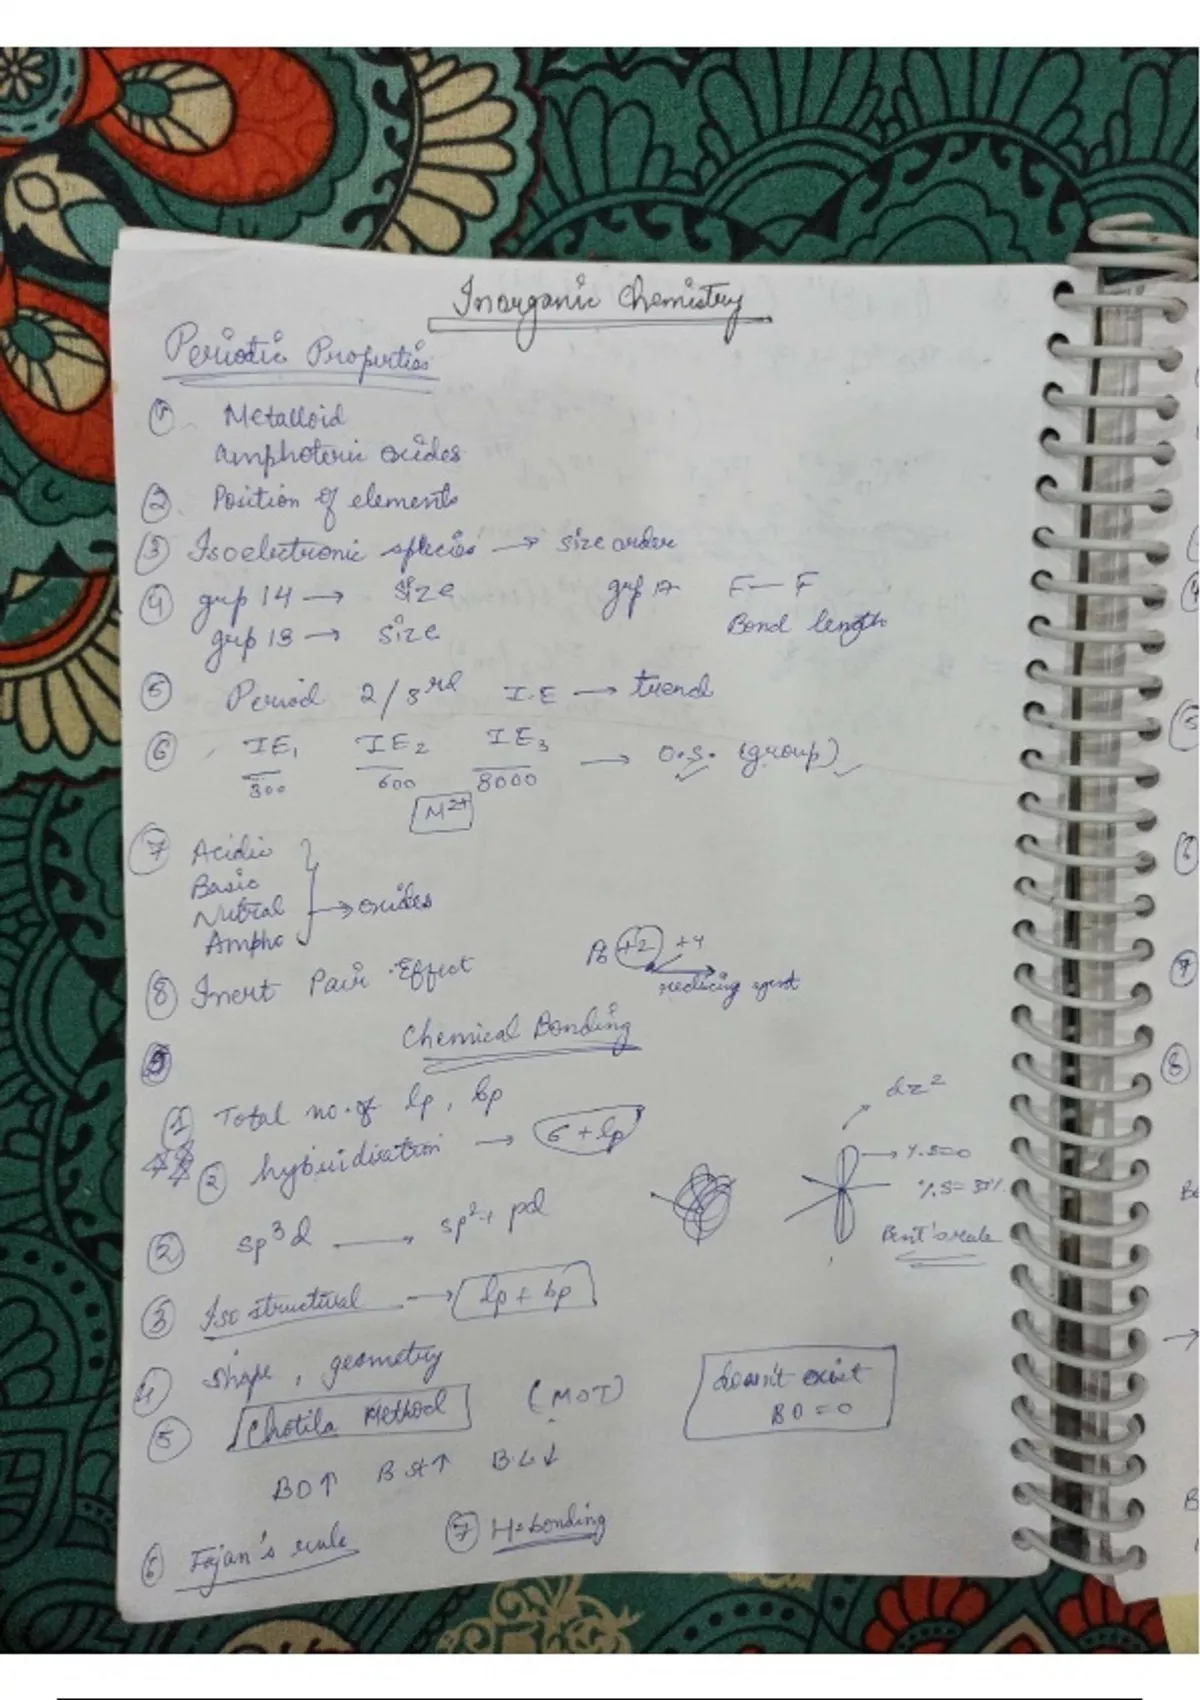 Inorganic Chemistry
Periodic Properties
① Metalloid
Amphoteric oxides
② Position of elements
③ Isoelectronic species → size order
④ grp 14 → size grp 17 F—F
grp 13 → size Bond length
⑤ Period 2/3rd I.E → trend
⑥ IE1 IE2 IE3 → O.S. (group)
300 600 8000
M2+
⑦ Acidic
Basic
Nutral → oxides
Ampho
⑧ Inert Pair Effect Pb +2 +4
reducing agent
Chemical Bonding
① Total no. of lp, bp
② hybridization → σ + lp
dz2
%S=0
② sp3d → sp2 + pd
%S=33%
Bent's rule
③ Iso structural → lp + bp
④ Shape, geometry
⑤ Chotila Method (MOT)
doesn't exist
BO=0
BO↑ B St↑ B.L↓
⑥ Fajan's rule ⑦ H-bonding